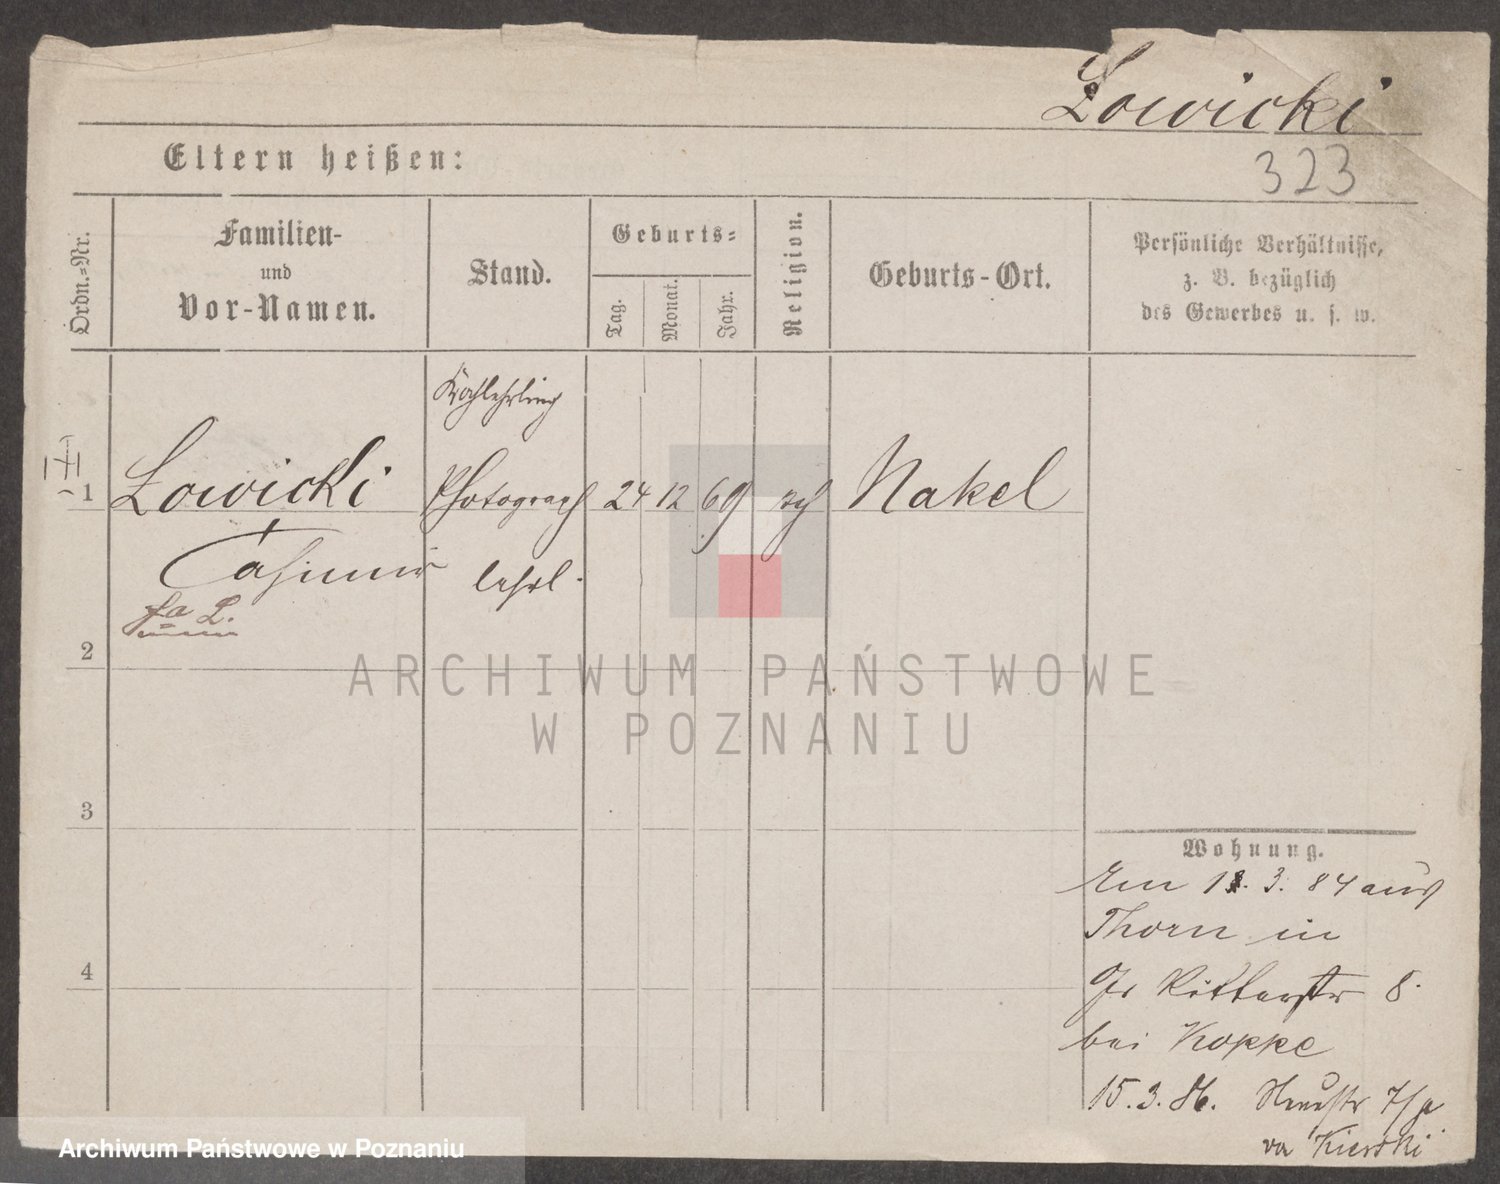 Lowicki
323
Eltern heißen:
Ordn.-Nr.
Familien-
und
Vor-Namen.
Stand.
Geburts-
Tag.
Monat.
Jahr.
Religion.
Geburts-Ort.
Persönliche Verhältnisse,
z. B. bezüglich
des Gewerbes u. s. w.
Kochlehrling
1 Lowicki Photograph 24 12 69 Nakel
Casimir lehrl.
2
ARCHIWUM PAŃSTWOWE
W POZNANIU
3
Wohnung.
3. 84 aus
Thorn in
4
Gr Ritterstr 8.
bei Koppe
15. 3. 86. Neustr 7/8
Kierski
Archiwum Państwowe w Poznaniu